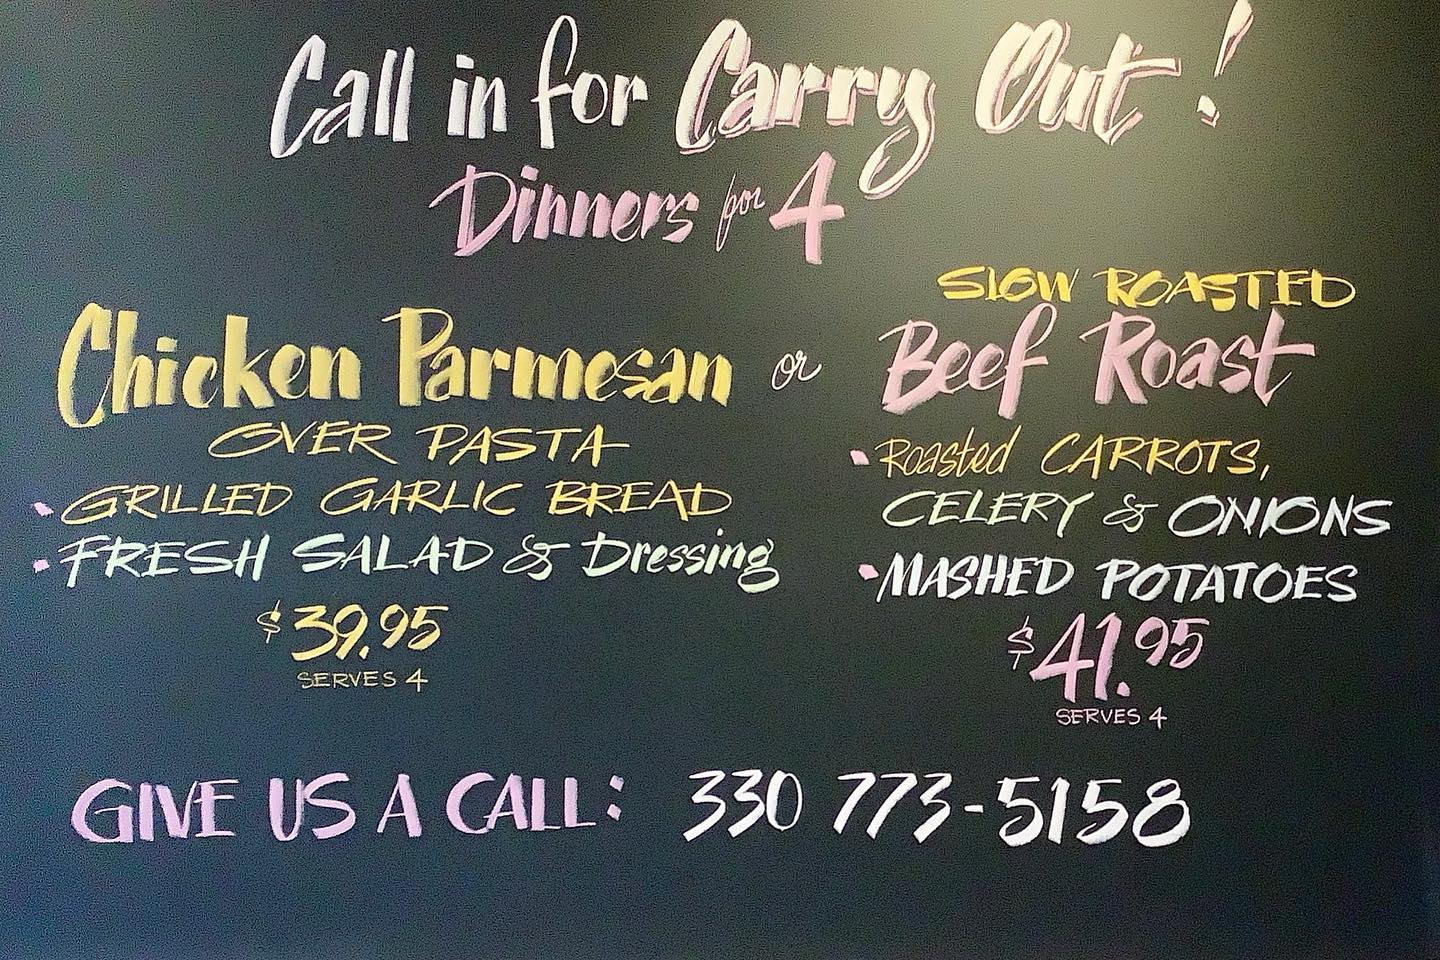 Call in for Carry Out!
Dinners for 4
Chicken Parmesan
OVER PASTA
• GRILLED GARLIC BREAD
• FRESH SALAD & Dressing
$39.95
SERVES 4
or
SLOW ROASTED
Beef Roast
• Roasted CARROTS,
CELERY & ONIONS
• MASHED POTATOES
$41.95
SERVES 4
GIVE US A CALL: 330 773-5158